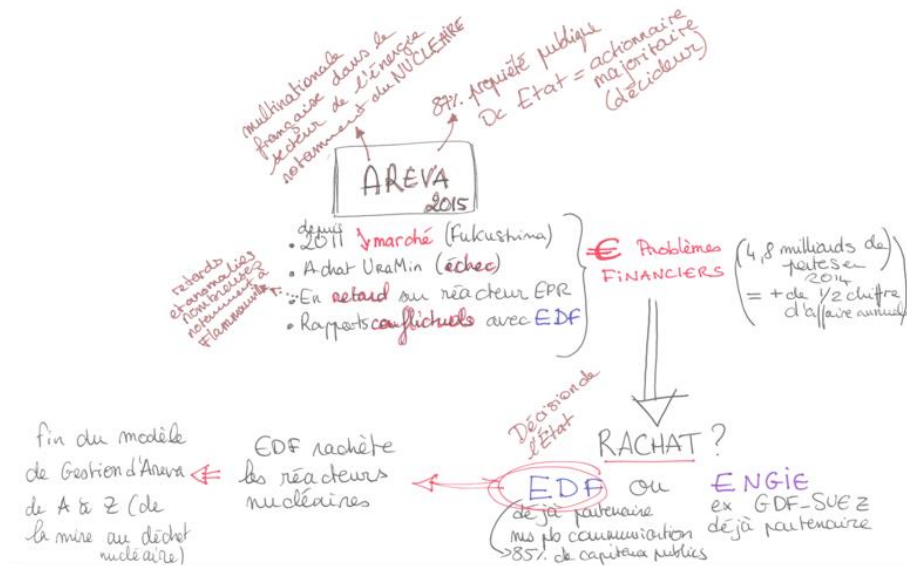 multinationale
française dans le
secteur de l'énergie
notamment du NUCLEAIRE
87% propriété publique
Dc Etat = actionnaire
majoritaire
(décideur)
AREVA
2015
• depuis 2011 ↘ marché (Fukushima)
• Achat UraMin (échec)
• En retard sur réacteur EPR
• Rapports conflictuels avec EDF
retards
et anomalies
nombreuses
notamment à
Flammanville
€ Problèmes
FINANCIERS
(4,8 milliards de
pertes en
2014
= + de 1/2 chiffre
d'affaire annuel)
Décision de
l'État
RACHAT ?
EDF ou ENGIE
déjà partenaire
ms pb communication
→ 85% de capitaux publics
ex GDF-SUEZ
déjà partenaire
EDF rachète
les réacteurs
nucléaires
fin du modèle
de Gestion d'Areva
de A à Z (de
la mine au déchet
nucléaire)